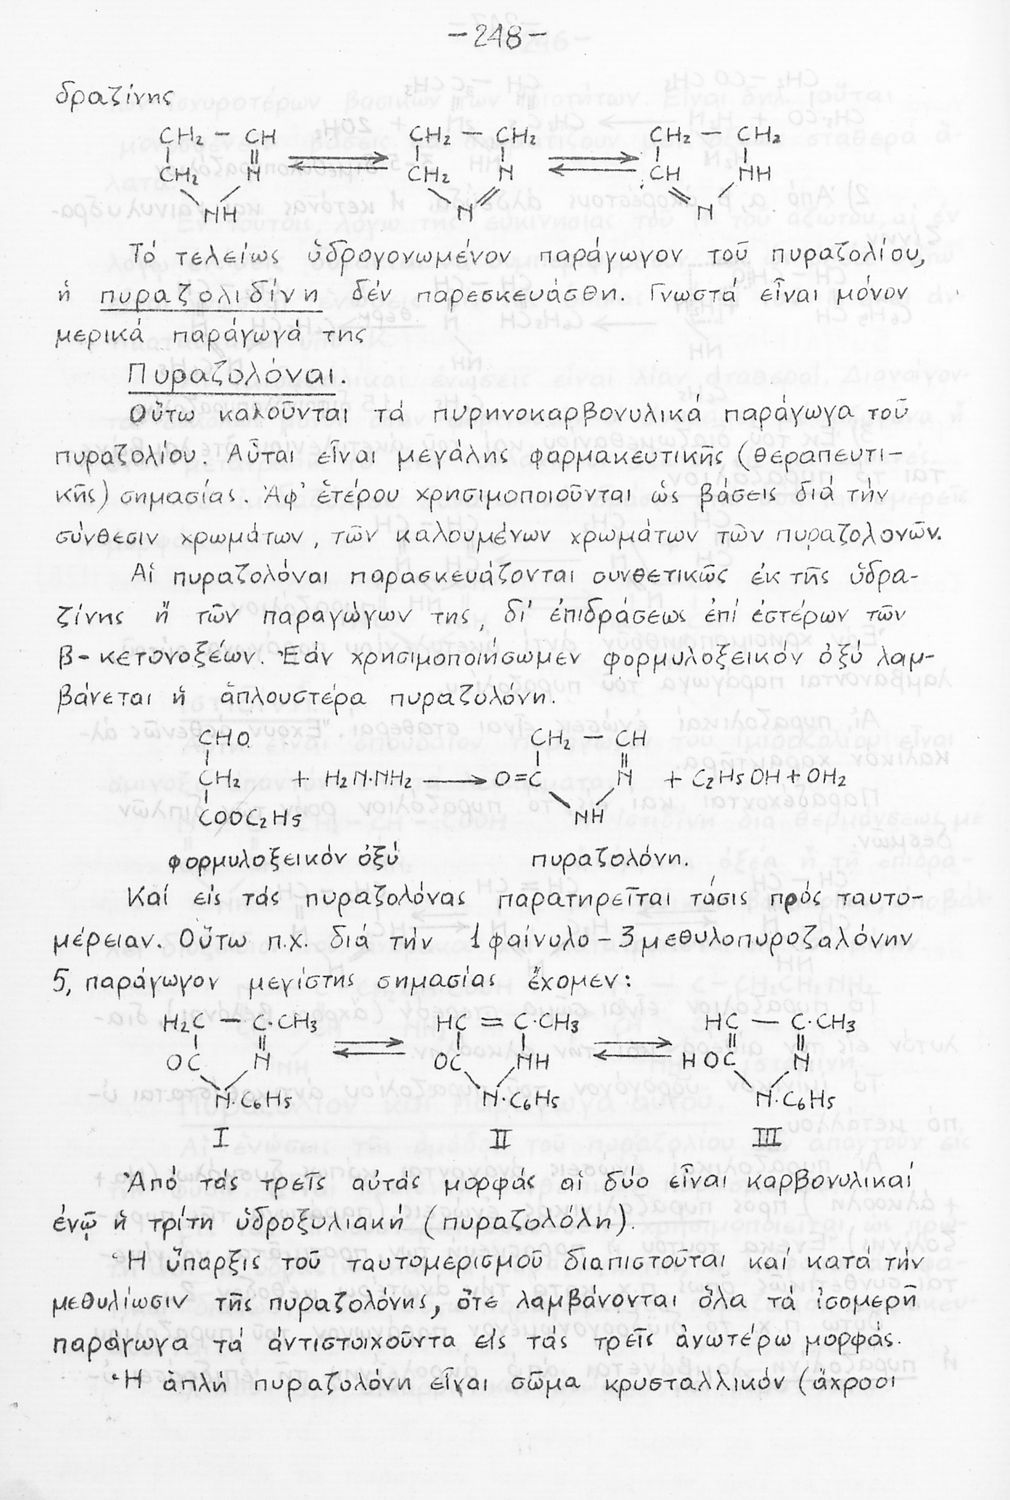 -248-
δραζίνης
CH₂ — CH CH₂ — CH₂ CH₂ — CH₂
CH₂ N CH₂ N CH NH
NH N N
Τό τελείως ὑδρογονωμένον παράγωγον τοῦ πυραζολίου,
ἡ πυραζολιδίνη δέν παρεσκευάσθη. Γνωστά εἶναι μόνον
μερικά παράγωγά της
Πυραζολόναι.
Οὕτω καλοῦνται τά πυρηνοκαρβονυλικά παράγωγα τοῦ
πυραζολίου. Αὗται εἶναι μεγάλης φαρμακευτικῆς (θεραπευτι-
κῆς) σημασίας. Ἀφ' ἑτέρου χρησιμοποιοῦνται ὡς βάσεις διά τήν
σύνθεσιν χρωμάτων, τῶν καλουμένων χρωμάτων τῶν πυραζολονῶν.
Αἱ πυραζολόναι παρασκευάζονται συνθετικῶς ἐκ τῆς ὑδρα-
ζίνης ἤ τῶν παραγώγων της, δι' ἐπιδράσεως ἐπί ἐστέρων τῶν
β-κετονοξέων. Ἐάν χρησιμοποιήσωμεν φορμυλοξεικόν ὀξύ λαμ-
βάνεται ἡ ἁπλουστέρα πυραζολόνη.
CHO CH₂ — CH
CH₂ + H₂N·NH₂ ⟶ O=C N + C₂H₅OH + OH₂
COOC₂H₅ NH
φορμυλοξεικόν ὀξύ πυραζολόνη.
Καί εἰς τάς πυραζολόνας παρατηρεῖται τάσις πρός ταυτο-
μέρειαν. Οὕτω π.χ. διά τήν 1 φαίνυλο-3 μεθυλοπυροζαλόνην
5, παράγωγον μεγίστης σημασίας ἔχομεν:
H₂C — C·CH₃ HC = C·CH₃ HC — C·CH₃
OC N OC NH HOC N
N·C₆H₅ N·C₆H₅ N·C₆H₅
I II III
Ἀπό τάς τρεῖς αὐτάς μορφάς αἱ δύο εἶναι καρβονυλικαί
ἐνῷ ἡ τρίτη ὑδροξυλιακή (πυραζολόλη).
Ἡ ὕπαρξις τοῦ ταυτομερισμοῦ διαπιστοῦται καί κατά τήν
μεθυλίωσιν τῆς πυραζολόνης, ὅτε λαμβάνονται ὅλα τά ἰσομερῆ
παράγωγα τά ἀντιστοιχοῦντα εἰς τάς τρεῖς ἀνωτέρω μορφάς.
Ἡ ἁπλή πυραζολόνη εἶναι σῶμα κρυσταλλικόν (ἄχροοι